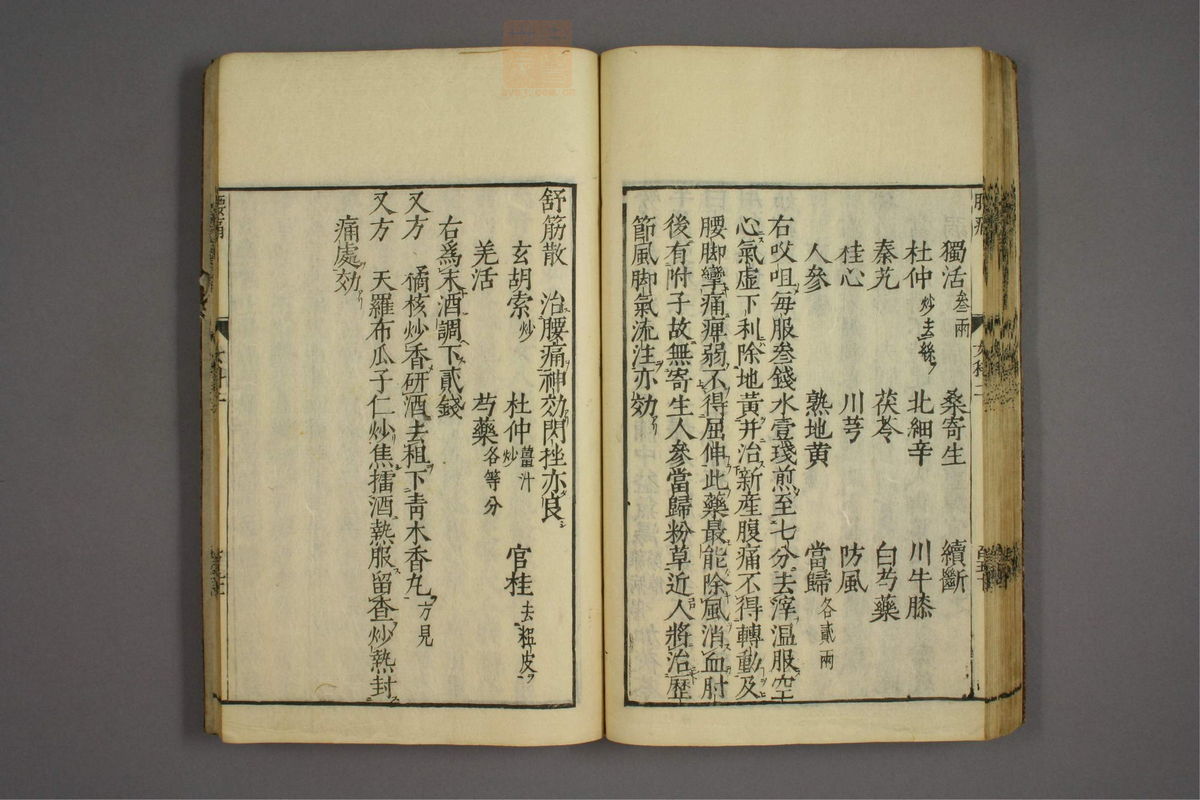 獨活叄兩 桑寄生 續斷
杜仲炒去絲 北細辛 川牛膝
秦艽 茯苓 白芍藥
桂心 川芎 防風
人參 熟地黃 當歸各貳兩
右㕮咀每服叄錢水壹琖煎至七分去滓温服空
心氣虛下利除地黃并治新産腹痛不得轉動及
腰脚攣痛痺弱不得屈伸此藥最能除風消血肘
後有附子故無寄生人參當歸粉草近人將治歷
節風脚氣流注亦効
舒筋散 治腰痛神効閃挫亦良
玄胡索炒 杜仲薑汁炒 官桂去粗皮
羌活 芍藥各等分
右爲末酒調下貳錢
又方 橘核炒香研酒去租下靑木香丸方見
又方 天羅布瓜子仁炒焦擂酒熱服留查炒熱封
痛處効
腰痛
女科二